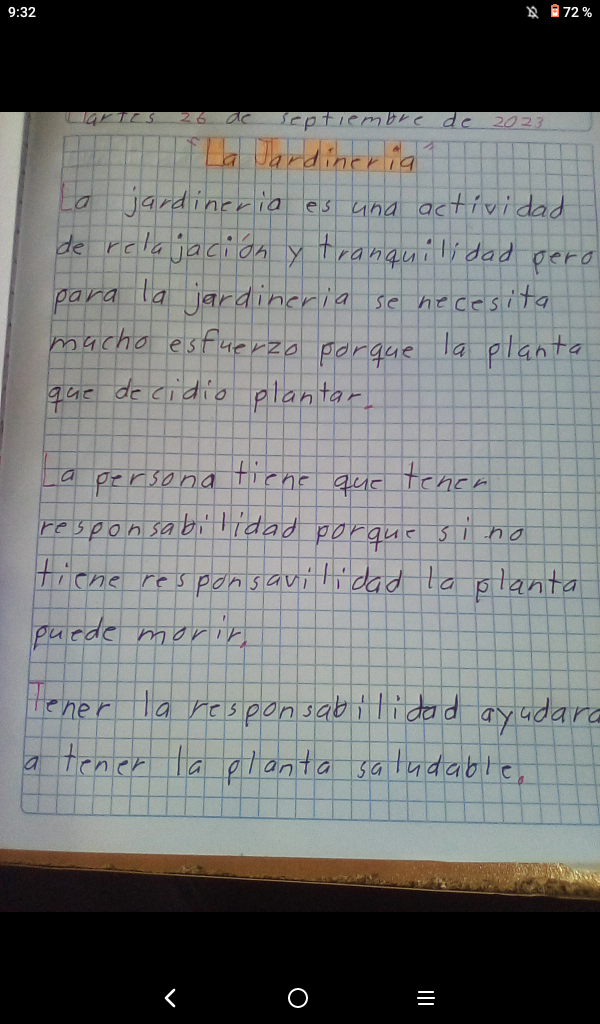 9:32
72 %
Martes 26 de septiembre de 2023
"La Jardineria"
La jardineria es una actividad
de relajación y tranquilidad pero
para la jardineria se necesita
mucho esfuerzo porque la planta
que decidio plantar.
La persona tiene que tener
responsabilidad porque si no
tiene responsavilidad la planta
puede morir.
Tener la responsabilidad ayudara
a tener la planta saludable.